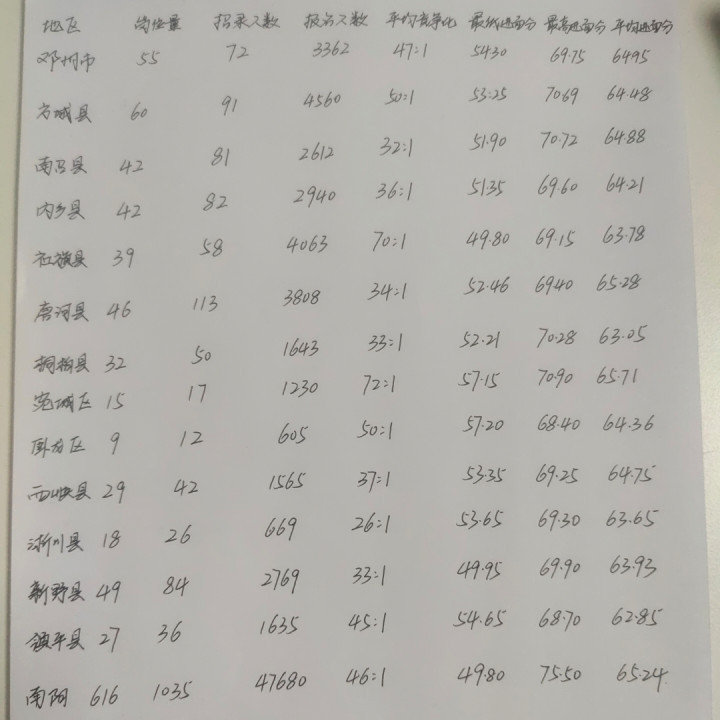 地区 岗位量 招录人数 报名人数 平均竞争比 最低进面分 最高进面分 平均进面分
邓州市 55 72 3362 47:1 5430 69.75 6495
方城县 60 91 4560 50:1 53.25 7069 64.48
南召县 42 81 2612 32:1 51.90 70.72 64.88
内乡县 42 82 2940 36:1 51.35 69.60 64.21
社旗县 39 58 4063 70:1 49.80 69.15 63.78
唐河县 46 113 3808 34:1 52.46 6940 65.28
桐柏县 32 50 1643 33:1 52.21 70.28 63.05
宛城区 15 17 1230 72:1 57.15 70.90 65.71
卧龙区 9 12 605 50:1 57.20 68.40 64.36
西峡县 29 42 1565 37:1 53.35 69.25 64.75
淅川县 18 26 669 26:1 53.65 69.30 63.65
新野县 49 84 2769 33:1 49.95 69.90 63.93
镇平县 27 36 1635 45:1 54.65 68.70 62.85
南阳 616 1035 47680 46:1 49.80 75.50 65.24